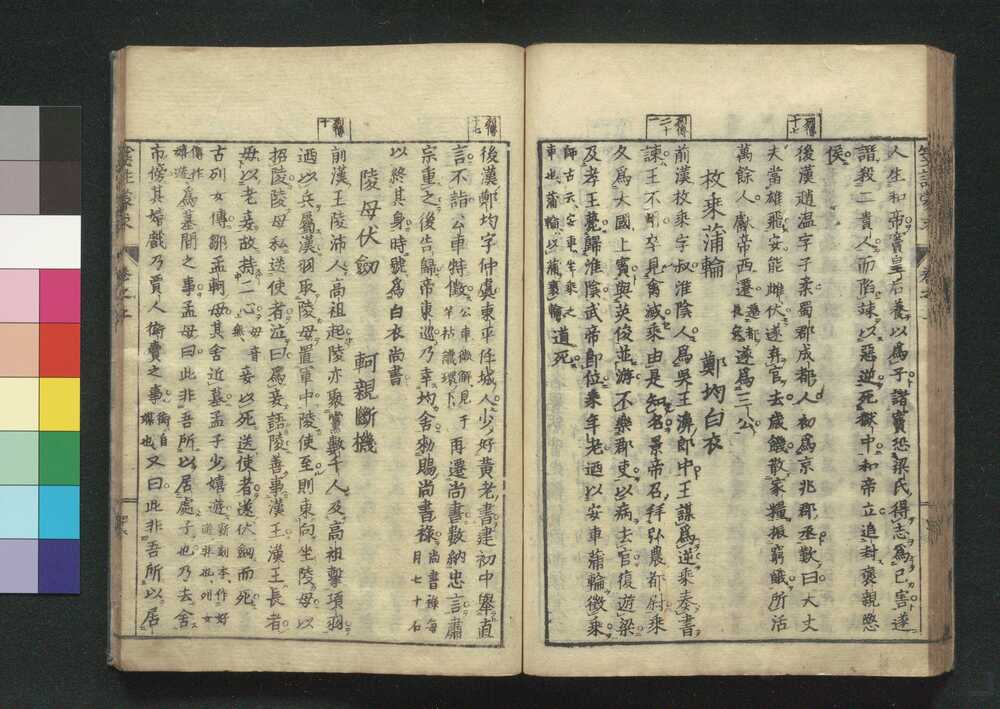 人生和帝竇皇后養以爲子諸竇恐梁氏得志爲己害遂
譖殺二貴人而陷竦以惡逆死獄中和帝立追封褒親愍
侯
後漢趙温字子柔蜀郡成都人初爲京兆郡丞歎曰大丈
夫當雄飛安能雌伏遂弃官去歳饑散家糧振窮餓所活
萬餘人獻帝西遷遂爲三公
枚乗蒲輪 鄭均白衣
前漢枚乗字叔淮陰人爲吴王濞郎中王謀爲逆乗奏書
諫王不用卒見禽滅乗由是知名景帝召拜弘農都尉乗
久爲大國上賓與英俊並游不樂郡吏以病去官復遊梁
及孝王薨歸淮陰武帝即位乗年老迺以安車蒲輪徴乗
師古云安車坐乗之
車也蒲輪以蒲裹輪
道死
後漢鄭均字仲虞東平任城人少好黄老書建初中舉直
言不詣公車特徴
再遷尚書數納忠言肅
宗重之後告歸帝東巡乃幸均舍勑賜尚書祿
尚書祿每
月七十石
以終其身時號爲白衣尚書
陵母伏劔 軻親斷機
前漢王陵沛人高祖起陵亦聚黨數千人及高祖擊項羽
迺以兵屬漢羽取陵母置軍中陵使至則東向坐陵母以
招陵陵母私送使者泣曰爲妾語陵善事漢王漢王長者
毋以老妾故持二心
妾以死送使者遂伏劔而死
古列女傳鄒孟軻母其舍近墓孟子少嬉遊
爲墓間之事孟母曰此非吾所以居處子也乃去舍
市傍其嬉戲乃賈人衒賣之事
又曰此非吾所以居